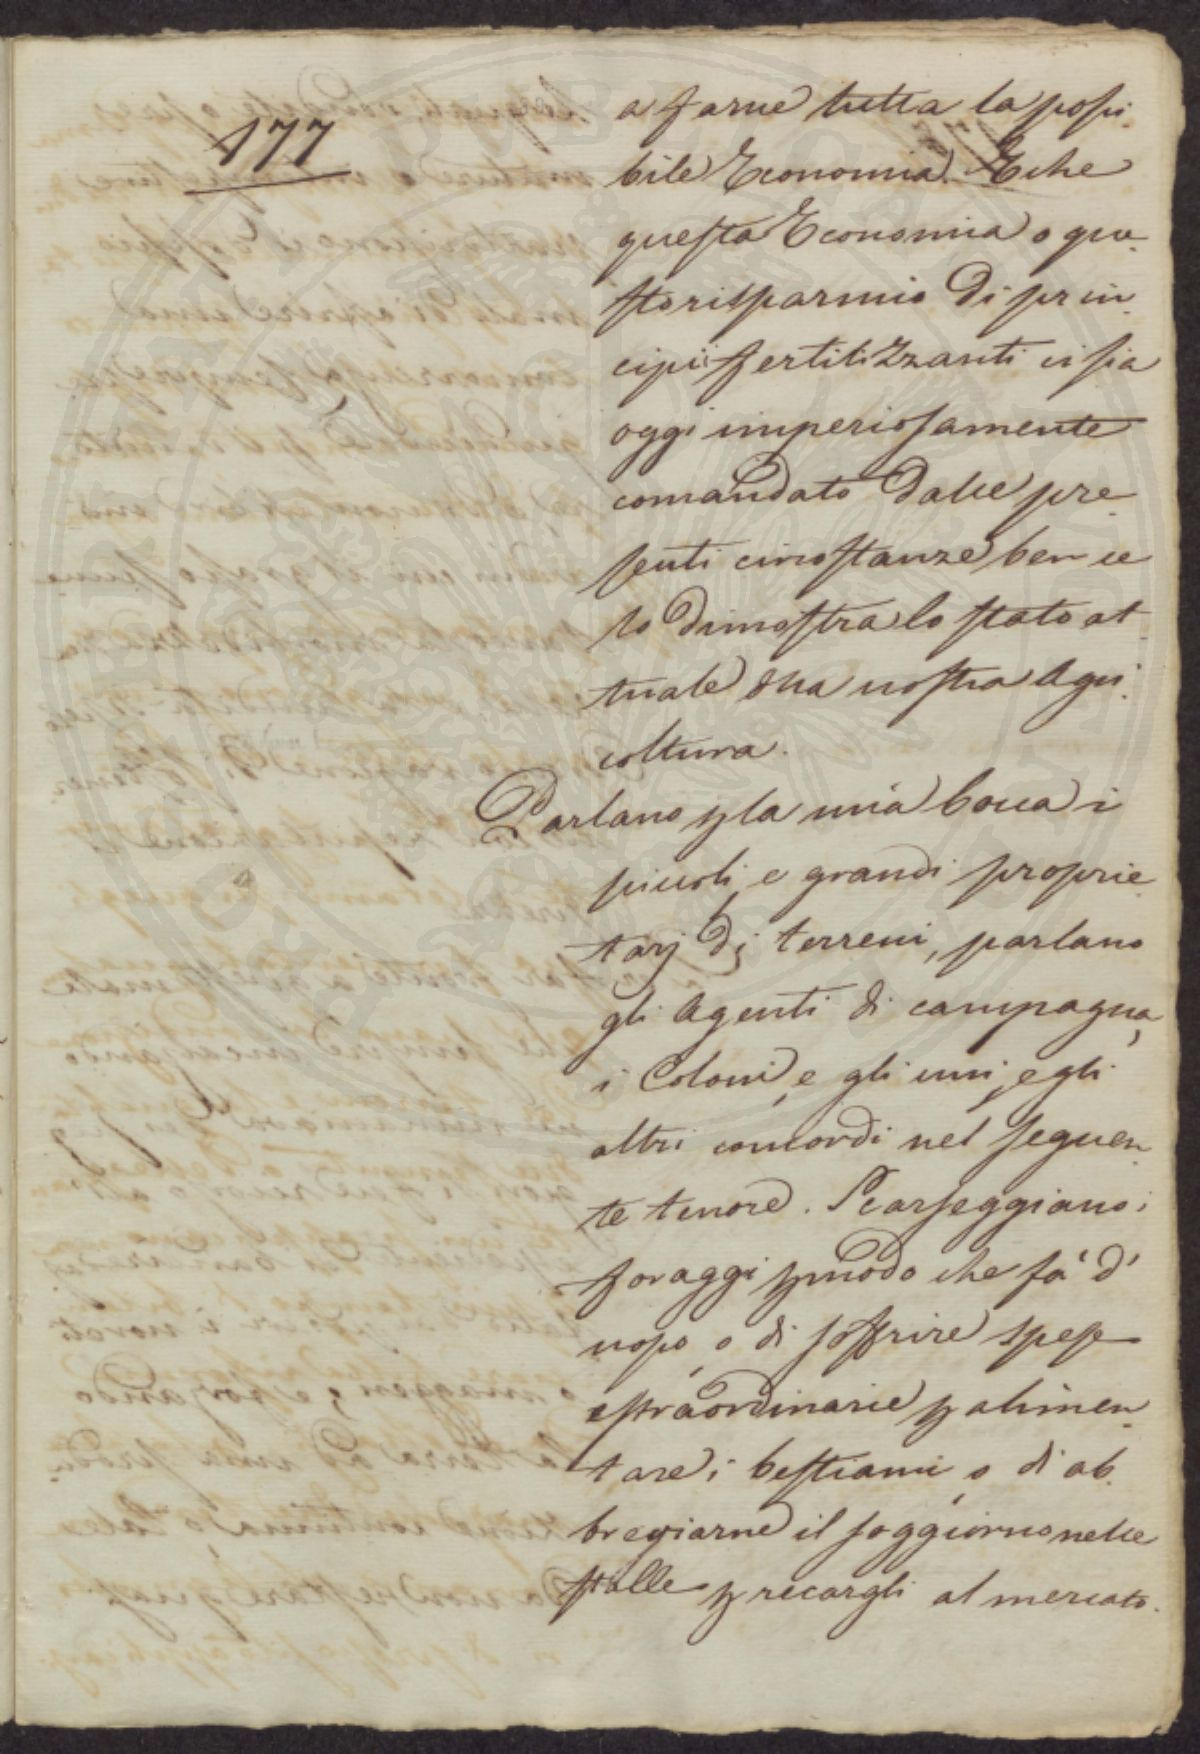 177
a farne tutta la possi-
bile Economia. E che
questa Economia o que-
sto risparmio di prin-
cipii fertilizzanti ci sia
oggi imperiosamente
comandato dalle pre-
senti circostanze ben ce
lo dimostra lo stato at-
tuale della nostra Agri-
coltura.
Parlano p la mia bocca i
piccoli, e grandi proprie-
tarj di terreni, parlano
gli Agenti di campagna,
i Coloni, e gli uni, e gli
altri concordi nel seguen-
te tenore. Scarseggiano i
foraggi p modo che fà d'
uopo, o di soffrire spese
estraordinarie p alimen-
tare i bestiami, o di ab-
breviarne il soggiorno nelle
stalle p recargli al mercato.